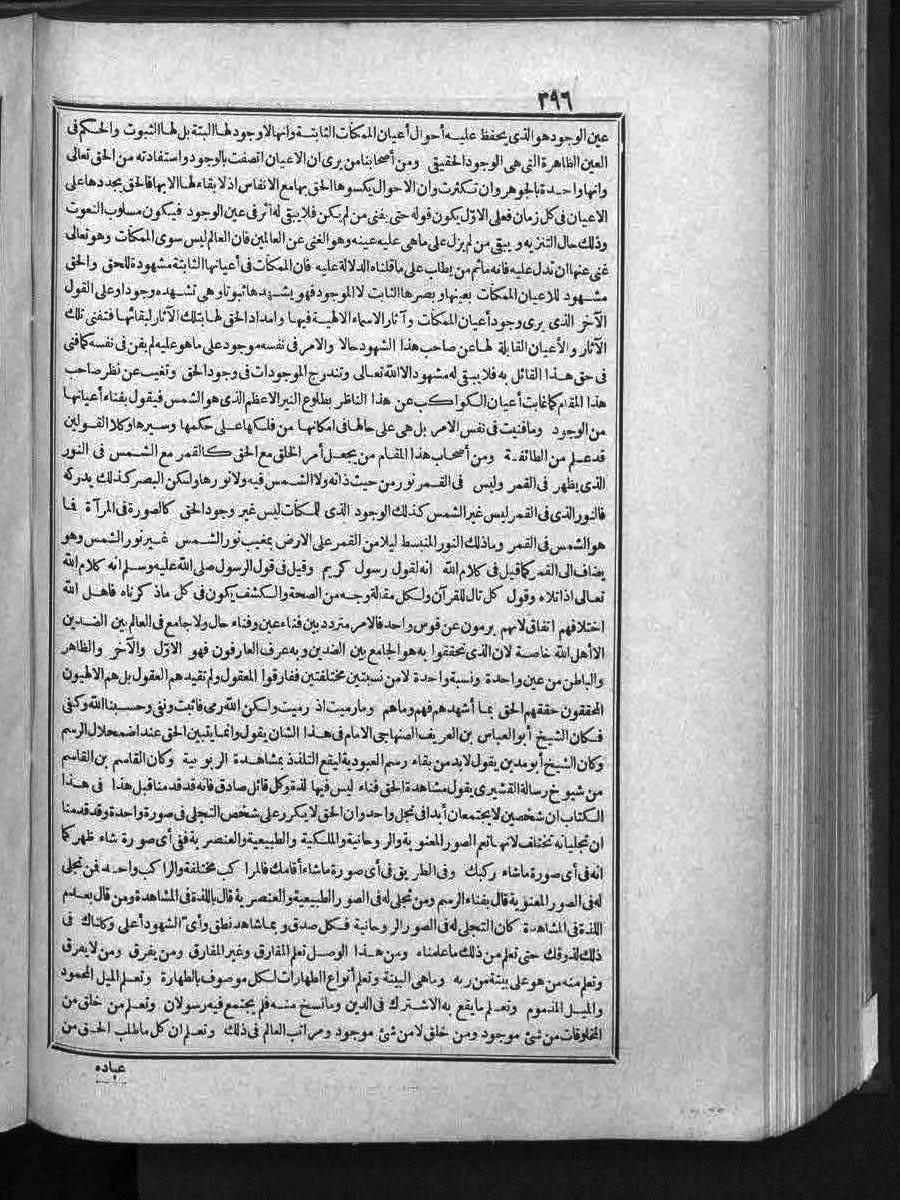 ٣٩٦
عين الوجود هو الذي يحفظ عليه أحوال أعيان الممكنات الثابتة وانها لا وجود لها البتة بل لها الثبوت والحكم في
العين الظاهرة التي هي الوجود الحقيقي ومن أصحابنا من يرى ان الاعيان اتصفت بالوجود واستفادته من الحق تعالى
وانها واحدة بالجوهر وان تكثرت وان الاحوال يكسوها الحق بها مع الانفاس اذ لا بقاء لها الا بها فالحق يجددها على
الاعيان في كل زمان فعلى الاول يكون قوله حتى يفنى من لم يكن فلا يبقى له أثر في عين الوجود فيكون مسلوب النعوت
وذلك حال التنزيه ويبقى من لم يزل على ما هى عليه عينه وهو الغني عن العالمين فان العالم ليس سوى الممكنات وهو تعالى
غنى عنها ان تدل عليه فانه ما ثم من يطلب على ما قلناه الدلالة عليه فان الممكنات في أعيانها الثابتة مشهودة للحق والحق
مشهود للاعيان الممكنات بعينها وبصرها الثابت لا الموجود فهو يشهدها ثبوتا وهي تشهده وجودا وعلى القول
الآخر الذي يرى وجود أعيان الممكنات وآثار الاسماء الالهية فيها وامداد الحق لها بتلك الآثار لبقائها فتفنى تلك
الآثار والأعيان القابلة لها عن صاحب هذا الشهود حالا والامر في نفسه موجود على ما هو عليه لم يفن في نفسه كما فنى
في حق هذا القائل به فلا يبقى له مشهود الا الله تعالى وتندرج الموجودات في وجود الحق وتغيب عن نظر صاحب
هذا المقام كما غابت أعيان الكواكب عن هذا الناظر بطلوع النير الاعظم الذي هو الشمس فيقول بفناء أعيانها
من الوجود وما فنيت في نفس الامر بل هي على حالها في امكانها من فلكها على حكمها وسيرها وكلا القولين
قد علم من الطائفة ومن أصحاب هذا المقام من يجعل أمر الخلق مع الحق كالقمر مع الشمس في النور
الذي يظهر في القمر وليس في القمر نور من حيث ذاته ولا الشمس فيه ولا نورها ولكن البصر كذلك يدركه
فالنور الذي في القمر ليس غير الشمس كذلك الوجود الذي للممكنات ليس غير وجود الحق كالصورة في المرآة فما
هو الشمس في القمر وما ذلك النور المنبسط ليلا من القمر على الارض بمغيب نور الشمس غير نور الشمس وهو
يضاف الى القمر كما قيل في كلام الله انه لقول رسول كريم وقيل في قول الرسول صلى الله عليه وسلم انه كلام الله
تعالى اذا تلاه وقول كل تال للقرآن ولكل مقالة وجه من الصحة والكشف يكون في كل ما ذكرناه فاهل الله
اختلافهم اتفاق لانهم يرمون عن قوس واحد فالامر متردد بين فناء عين وفناء حال ولا جامع في العالم بين الضدين
الا أهل الله خاصة لان الذي تحققوا به هو الجامع بين الضدين وبه عرف العارفون فهو الاول والآخر والظاهر
والباطن من عين واحدة ونسبة واحدة لا من نسبتين مختلفتين ففارقوا المعقول ولم تقيدهم العقول بل هم الالهيون
المحققون حققهم الحق بما أشهدهم فهم وما هم وما رميت اذ رميت ولكن الله رمى فاثبت ونفى وحسبنا الله وكفى
فكان الشيخ أبو العباس بن العريف الصنهاجي الامام في هذا الشان يقول وانما يتبين الحق عند اضمحلال الرسم
وكان الشيخ أبو مدين يقول لا بد من بقاء رسم العبودية ليقع التلذذ بمشاهدة الربوبية وكان القاسم بن القاسم
من شيوخ رسالة القشيري يقول مشاهدة الحق فناء ليس فيها لذة وكل قائل صادق فانه قد قدمنا قبل هذا في هذا
الكتاب ان شخصين لا يجتمعان أبدا في تجل واحد وان الحق لا يكرر على شخص التجلي في صورة واحدة وقد قدمنا
ان تجلياته تختلف لانها تعم الصور المعنوية والروحانية والملكية والطبيعية والعنصرية ففي أي صورة شاء ظهر كما
انه في أي صورة ما شاء ركبك وفي الطريق في أي صورة ما شاء أقامك فالمراكب مختلفة والراكب واحد فمن تجلى
له في الصور المعنوية قال بفناء الرسم ومن تجلى له في الصور الطبيعية والعنصرية قال باللذة في المشاهدة ومن قال بعدم
اللذة في المشاهدة كان التجلي له في الصور الروحانية فكل صدق وبما شاهد نطق وأي الشهود أعلى وكاناك في
ذلك لذوقك حتى تعلم من ذلك ما علمناه ومن هذا الوصل تعلم المفارق وغير المفارق ومن يفرق ومن لا يفرق
وتعلم منه من هو على بينة من ربه وما هي البينة وتعلم أنواع الطهارات لكل موصوف بالطهارة وتعلم الميل المحمود
والميل المذموم وتعلم ما يقع به الاشتراك في الدين وما نسخ منه فلم يجتمع فيه رسولان وتعلم من خلق من
المخلوقات من شئ موجود ومن خلق لا من شئ موجود ومراتب العالم في ذلك وتعلم ان كل ما طلب الحق من
عباده